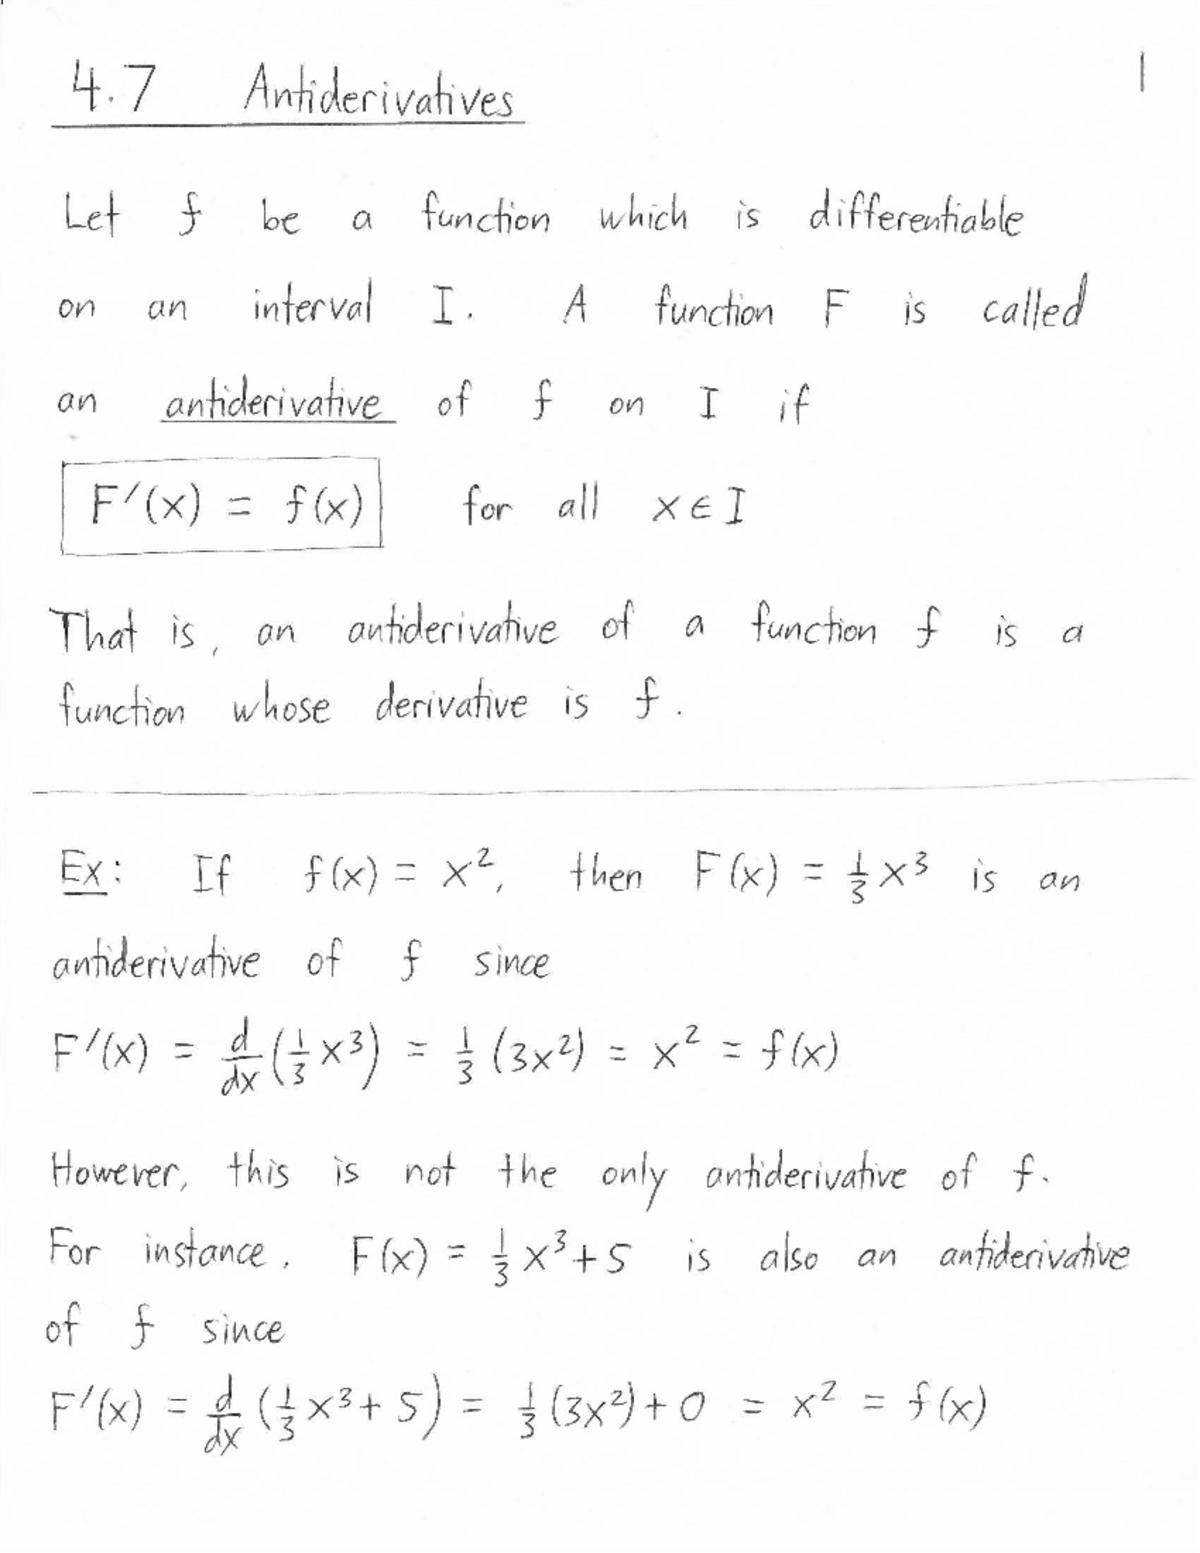 4.7 Antiderivatives
1
Let f be a function which is differentiable
on an interval I. A function F is called
an antiderivative of f on I if
F′(x) = f(x) for all x ∈ I
That is, an antiderivative of a function f is a
function whose derivative is f.
Ex: If f(x) = x², then F(x) = ⅓x³ is an
antiderivative of f since
F′(x) = d/dx (⅓x³) = ⅓(3x²) = x² = f(x)
However, this is not the only antiderivative of f.
For instance, F(x) = ⅓x³+5 is also an antiderivative
of f since
F′(x) = d/dx (⅓x³+5) = ⅓(3x²)+0 = x² = f(x)